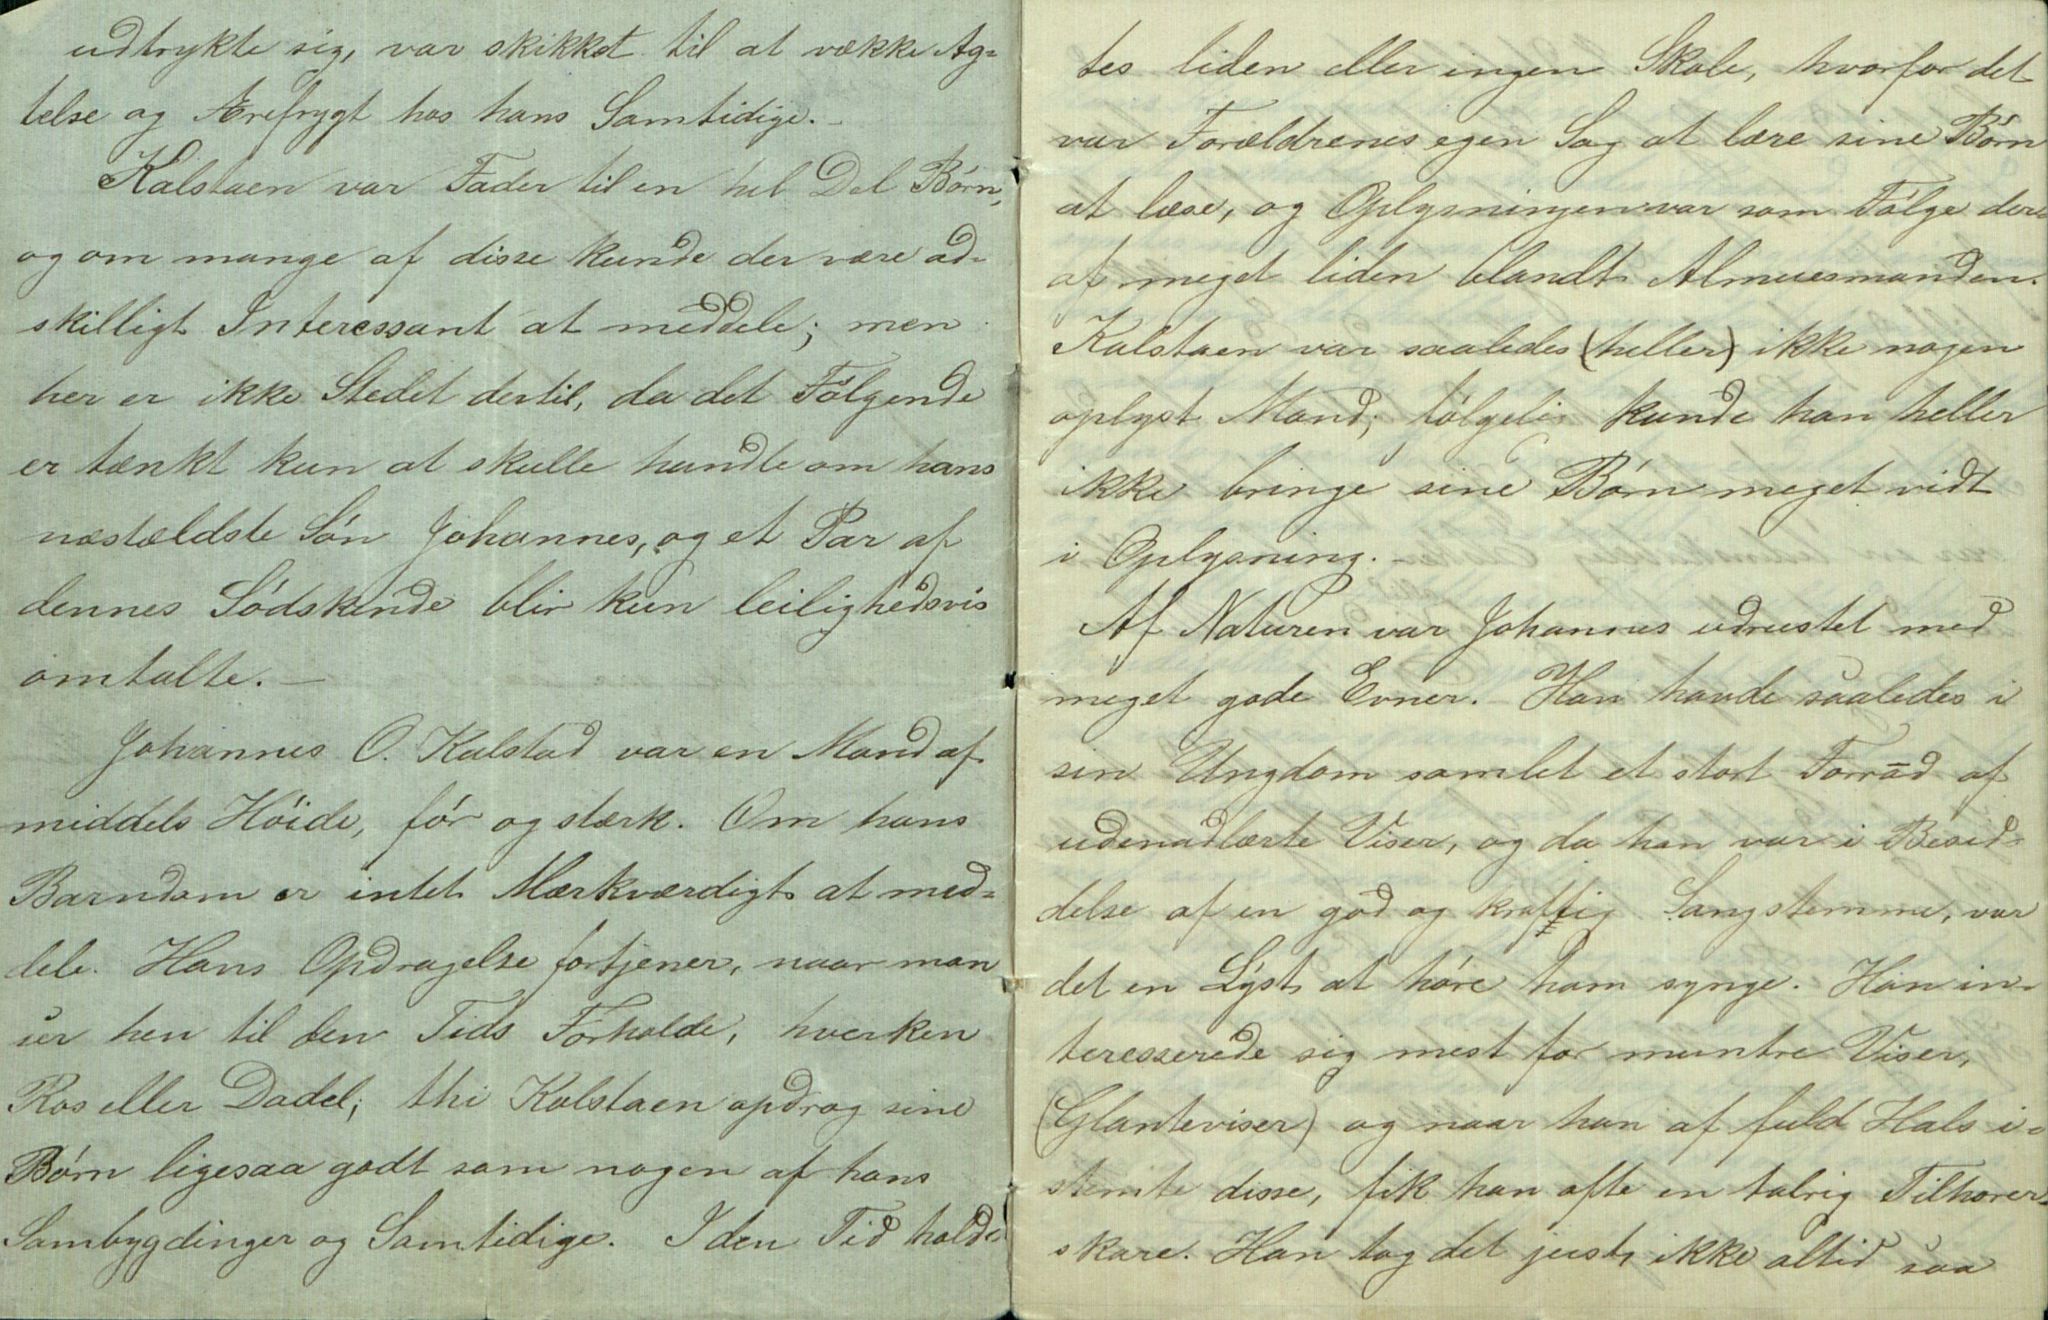 udtrykte sig, var skikket til at vække Ag-
telse og Ærefrygt hos hans Samtidige. -
Kalstaen var Fader til en hel Del Børn,
og om mange af disse kunde der være ad-
skilligt Interessant at meddele; men
her er ikke Stedet dertil, da det Følgende
er tænkt kun at skulle handle om hans
næstældste Søn Johannes, og et Par af
dennes Sødskende blir kun leilighedsvis
omtalte. —
Johannes O. Kalstad var en Mand af
middels Høide, før og stærk. Om hans
Barndom er intet Mærkværdigt at med-
dele. Hans Opdragelse fortjener, naar man
ser hen til den Tids Forholde, hverken
Ros eller Dadel; thi Kalstaen opdrog sine
Børn ligesaa godt som nogen af hans
Sambygdinger og Samtidige. I den Tid holdt-
tes liden eller ingen Skole, hvorfor det
var Forældrenes egen Sag at lære sine Børn
at læse, og Oplysningen var som Følge der-
af meget liden blandt Almuesmanden.
Kalstaen var saaledes (heller) ikke nogen
oplyst Mand; følgelig kunde han heller
ikke bringe sine Børn meget vidt
i Oplysning. -
Af Naturen var Johannes udrustet med
meget gode Evner. Han havde saaledes i
sin Ungdom samlet et stort Forråd af
udenadlærte Viser, og da han var i Besid-
delse af en god og kraftig Sangstemme, var
det en Lyst at høre ham synge. Han in-
teresserede sig mest for muntre Viser,
(Glanteviser) og naar han af fuld Hals i-
stemte disse, fik han ofte en talrig Tilhører-
skare. Han tog det just ikke altid saa